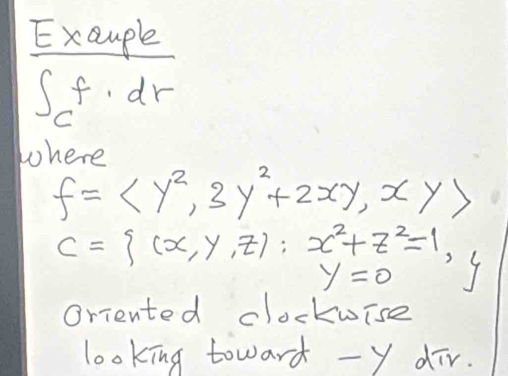 Example
∫_C f · dr
where
f = < y², 3y² + 2xy, xy >
C = { (x, y, z) : x² + z² = 1,
y = 0 }
oriented clockwise
looking toward - y dir.